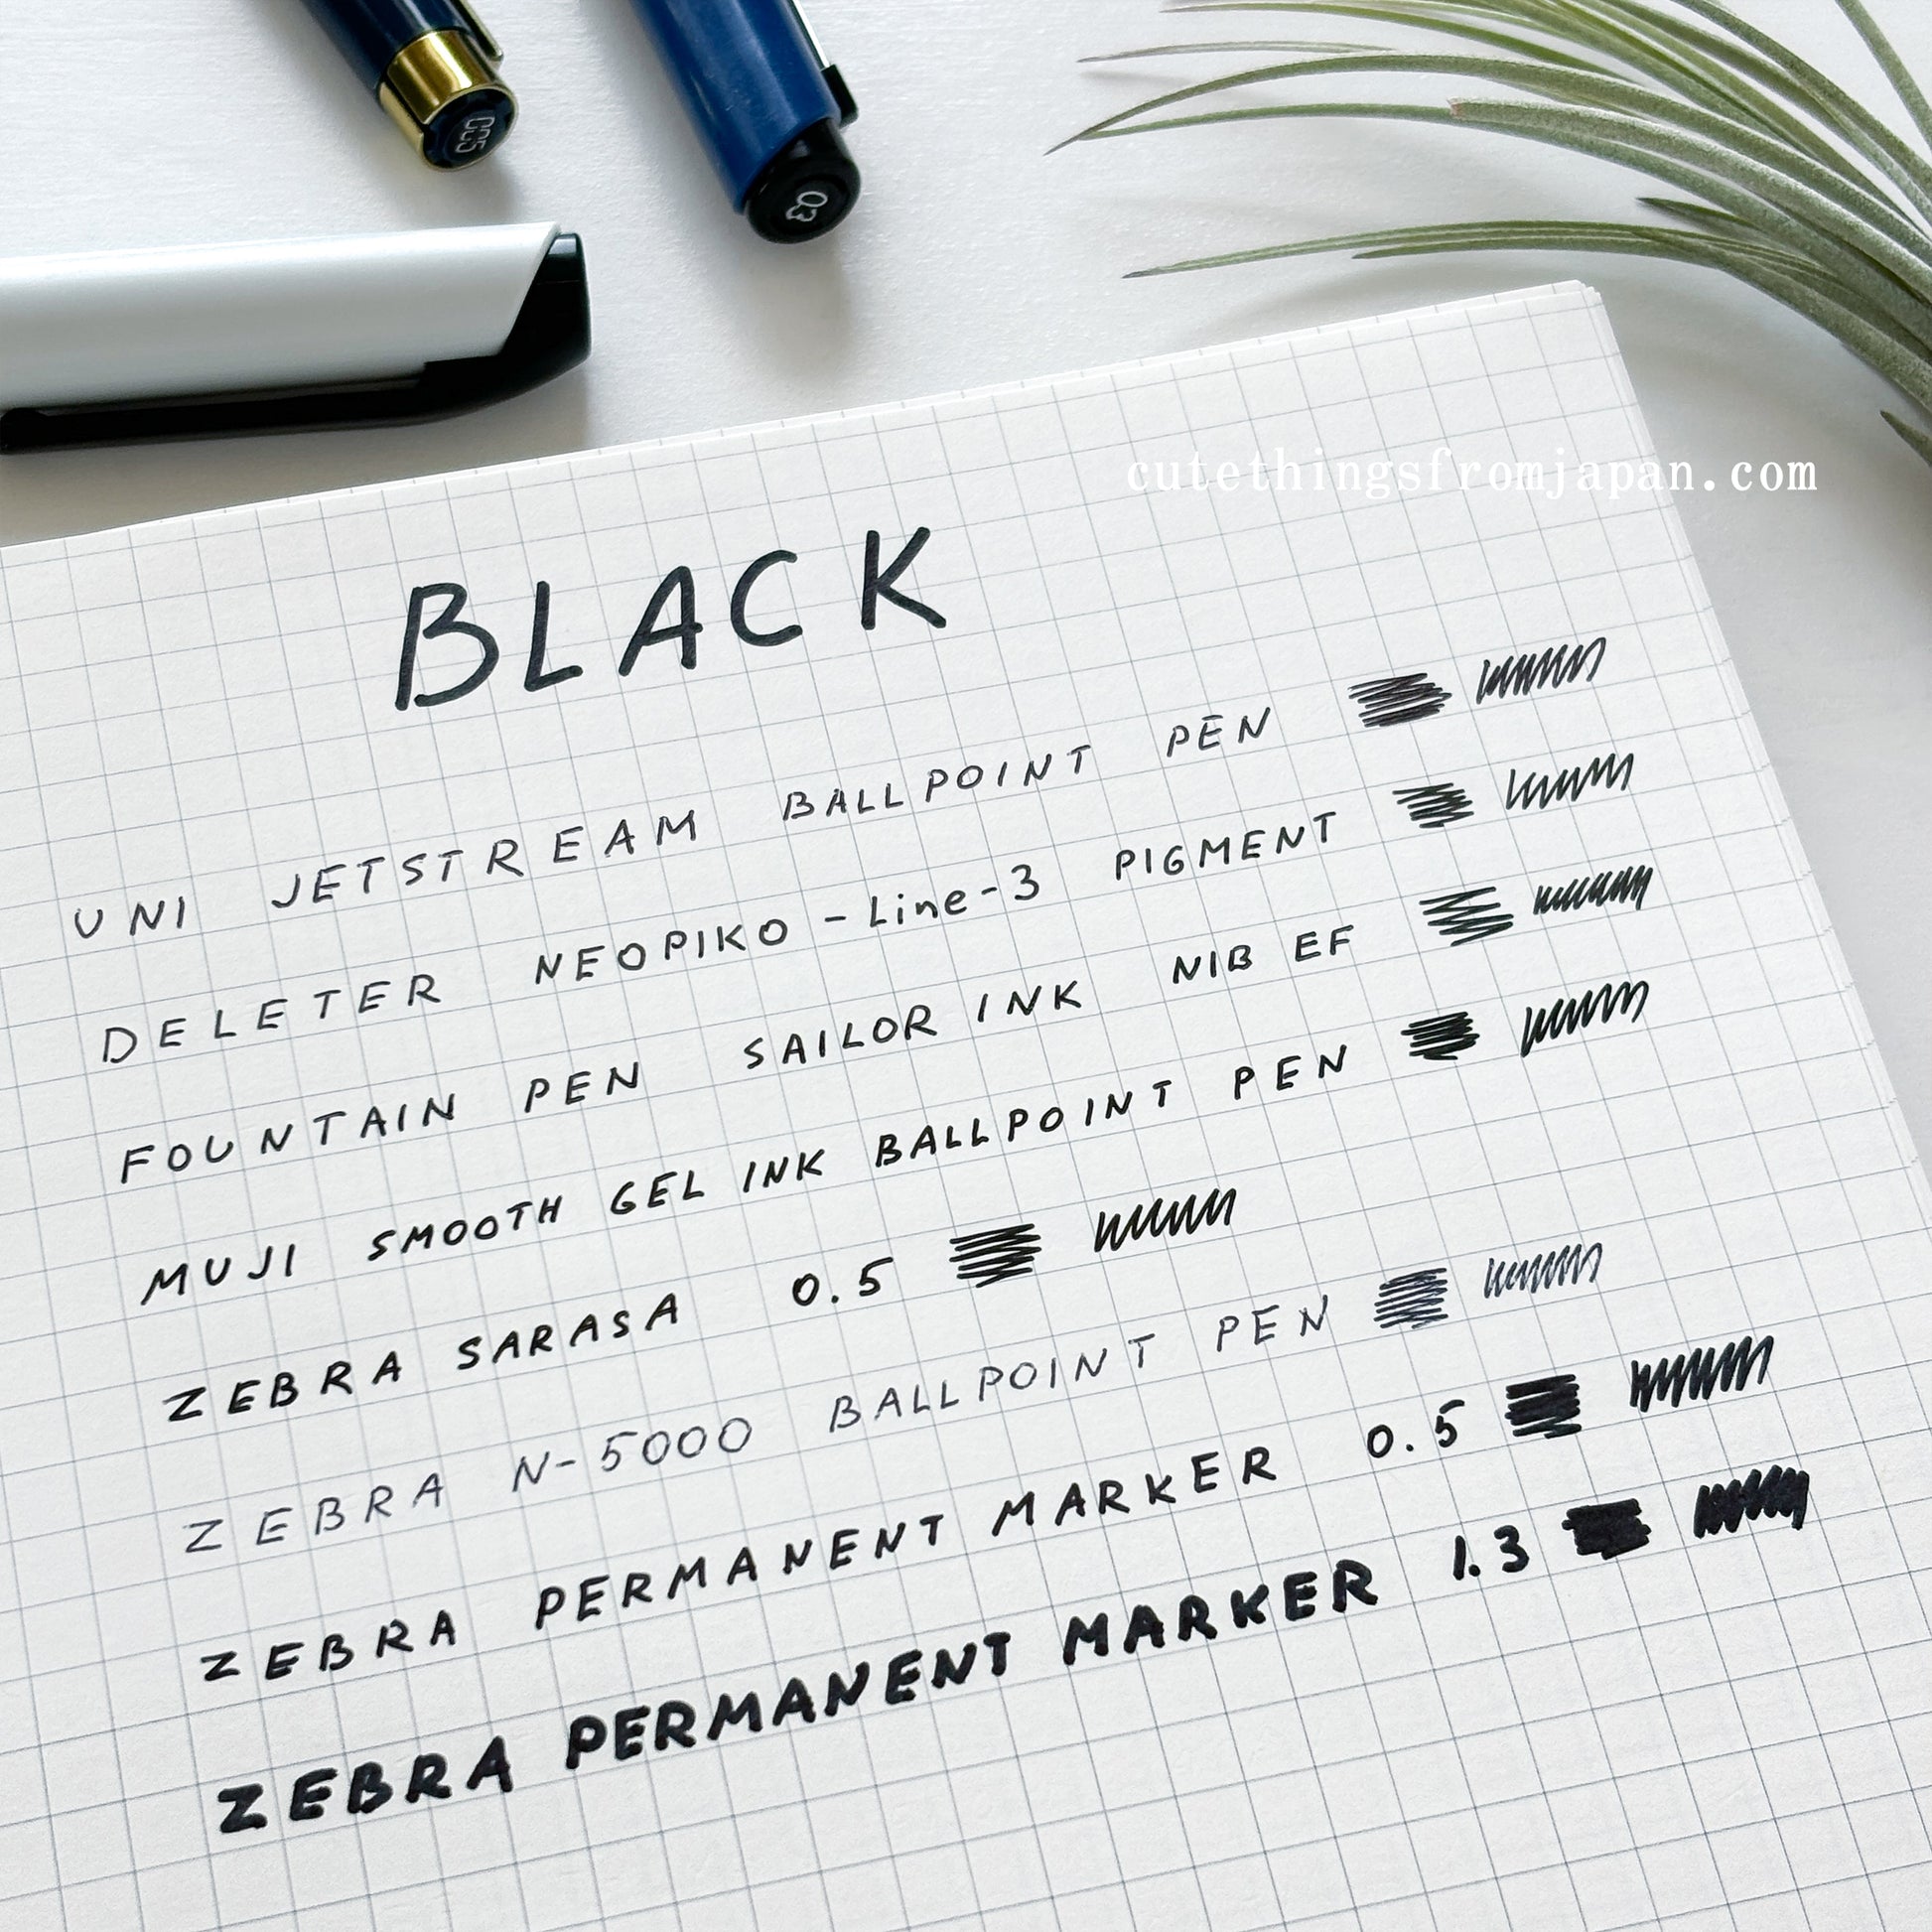 005
03
cutethingsfromjapan.com
BLACK
UNI JETSTREAM BALLPOINT PEN
DELETER NEOPIKO-Line-3 PIGMENT
FOUNTAIN PEN SAILOR INK NIB EF
MUJI SMOOTH GEL INK BALLPOINT PEN
ZEBRA SARASA 0.5
ZEBRA N-5000 BALLPOINT PEN
ZEBRA PERMANENT MARKER 0.5
ZEBRA PERMANENT MARKER 1.3